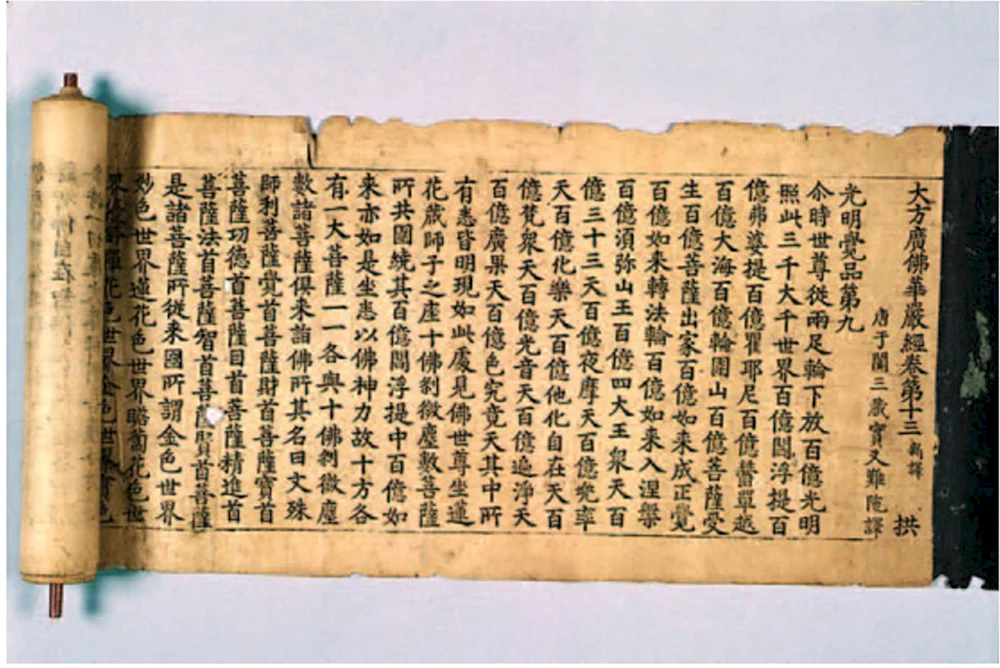 大方廣佛華嚴經卷第十三 新譯 拱
唐于闐三藏實叉難陁譯
光明覺品第九
尒時世尊從兩足輪下放百億光明
照此三千大千世界百億閻浮提百
億弗婆提百億瞿耶尼百億欝單越
百億大海百億輪圍山百億菩薩受
生百億菩薩出家百億如来成正覺
百億如来轉法輪百億如来入涅槃
百億須弥山王百億四大王衆天百
億三十三天百億夜摩天百億兜率
天百億化樂天百億他化自在天百
億梵衆天百億光音天百億遍淨天
百億廣果天百億色究竟天其中所
有悉皆明現如此處見佛世尊坐蓮
花藏師子之座十佛剎微塵數菩薩
所共圍繞其百億閻浮提中百億如
来亦如是坐悉以佛神力故十方各
有一大菩薩一一各與十佛剎微塵
數諸菩薩俱来詣佛所其名曰文殊
師利菩薩覺首菩薩財首菩薩寶首
菩薩功德首菩薩目首菩薩精進首
菩薩法首菩薩智首菩薩賢首菩薩
是諸菩薩所從来國所謂金色世界
妙色世界蓮花色世界瞻蔔花色世
界羅花色世界金色世界寶色